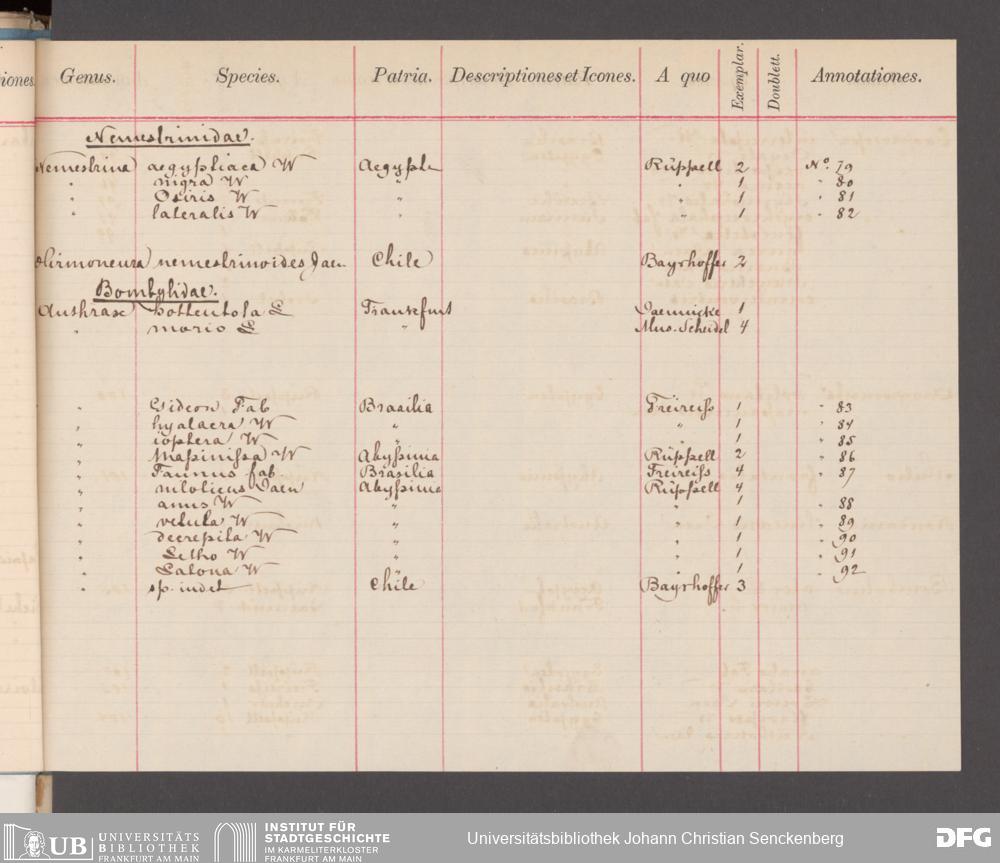 iones.
Genus. Species. Patria. Descriptiones et Icones. A quo Exemplar. Doublett. Annotationes.
Nemestrinidae.
Nemestrina aegyptiaca W Aegypte Rüppell 2 No. 79
" nigra W " " 1 " 80
" Osiris W " " 1 " 81
" lateralis W " " 1 " 82
Hirmoneura nemestrinoides Jaen. Chile Bayrhoffer 2
Bombylidae.
Anthrax hottentota L Frankfurt Jaennicke 1
" morio L " Mus. Scheidel 4
" Gideon Fab Brasilia Freireiss 1 " 83
" hyalacra W " " 1 " 84
" ioptera W " 1 " 85
" Massinissa W Abyssinia Rüppell 2 " 86
" Faunus fab Brasilia Freireiss 4 " 87
" niloticus Jaen Abyssinia Rüppell 4
" anus W " " 1 " 88
" vetula W " " 1 " 89
" decrepita W " " 1 " 90
" Letho W " " 1 " 91
" Latona W " " 1 " 92
" sp. indet Chile Bayrhoffer 3
UB UNIVERSITÄTS
BIBLIOTHEK
FRANKFURT AM MAIN
INSTITUT FÜR
STADTGESCHICHTE
IM KARMELITERKLOSTER
FRANKFURT AM MAIN
Universitätsbibliothek Johann Christian Senckenberg
DFG